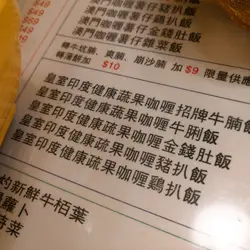 $49
澳門咖喱薯仔豬扒飯
$49
澳門咖喱薯仔雞扒飯
$49
澳門咖喱薯仔金錢肚飯
澳門咖喱薯仔雜菜飯
轉牛坑腩、爽腩、崩沙腩 加 $9 限量供應
轉薄餅加 $10
皇室印度健康蔬果咖喱招牌牛腩飯
皇室印度健康蔬果咖喱牛脷飯
皇室印度健康蔬果咖喱金錢肚飯
皇室印度健康蔬果咖喱豬扒飯
皇室印度健康蔬果咖喱鷄扒飯
灼新鮮牛栢葉
蘿蔔
菜